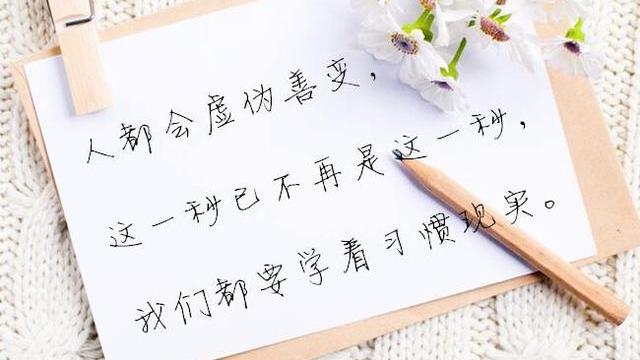 人都会虚伪善变，
这一秒已不再是这一秒，
我们都要学着习惯现实。